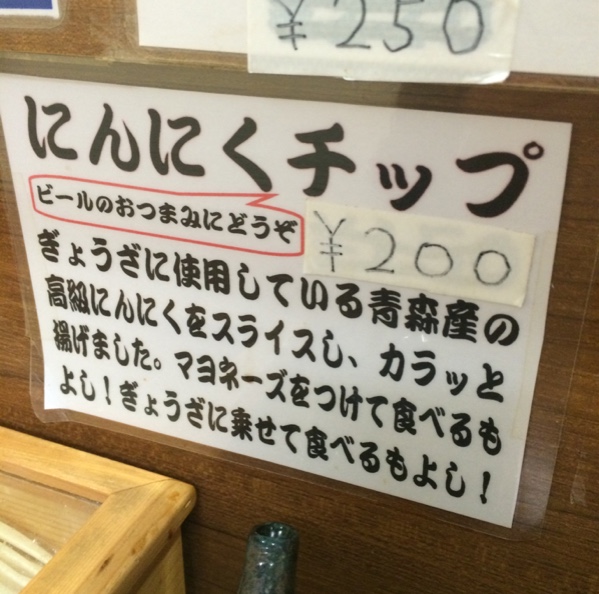 ¥250
にんにくチップ
ビールのおつまみにどうぞ
¥200
ぎょうざに使用している青森産の
高級にんにくをスライスし、カラッと
揚げました。マヨネーズをつけて食べるも
よし！ぎょうざに乗せて食べるもよし！